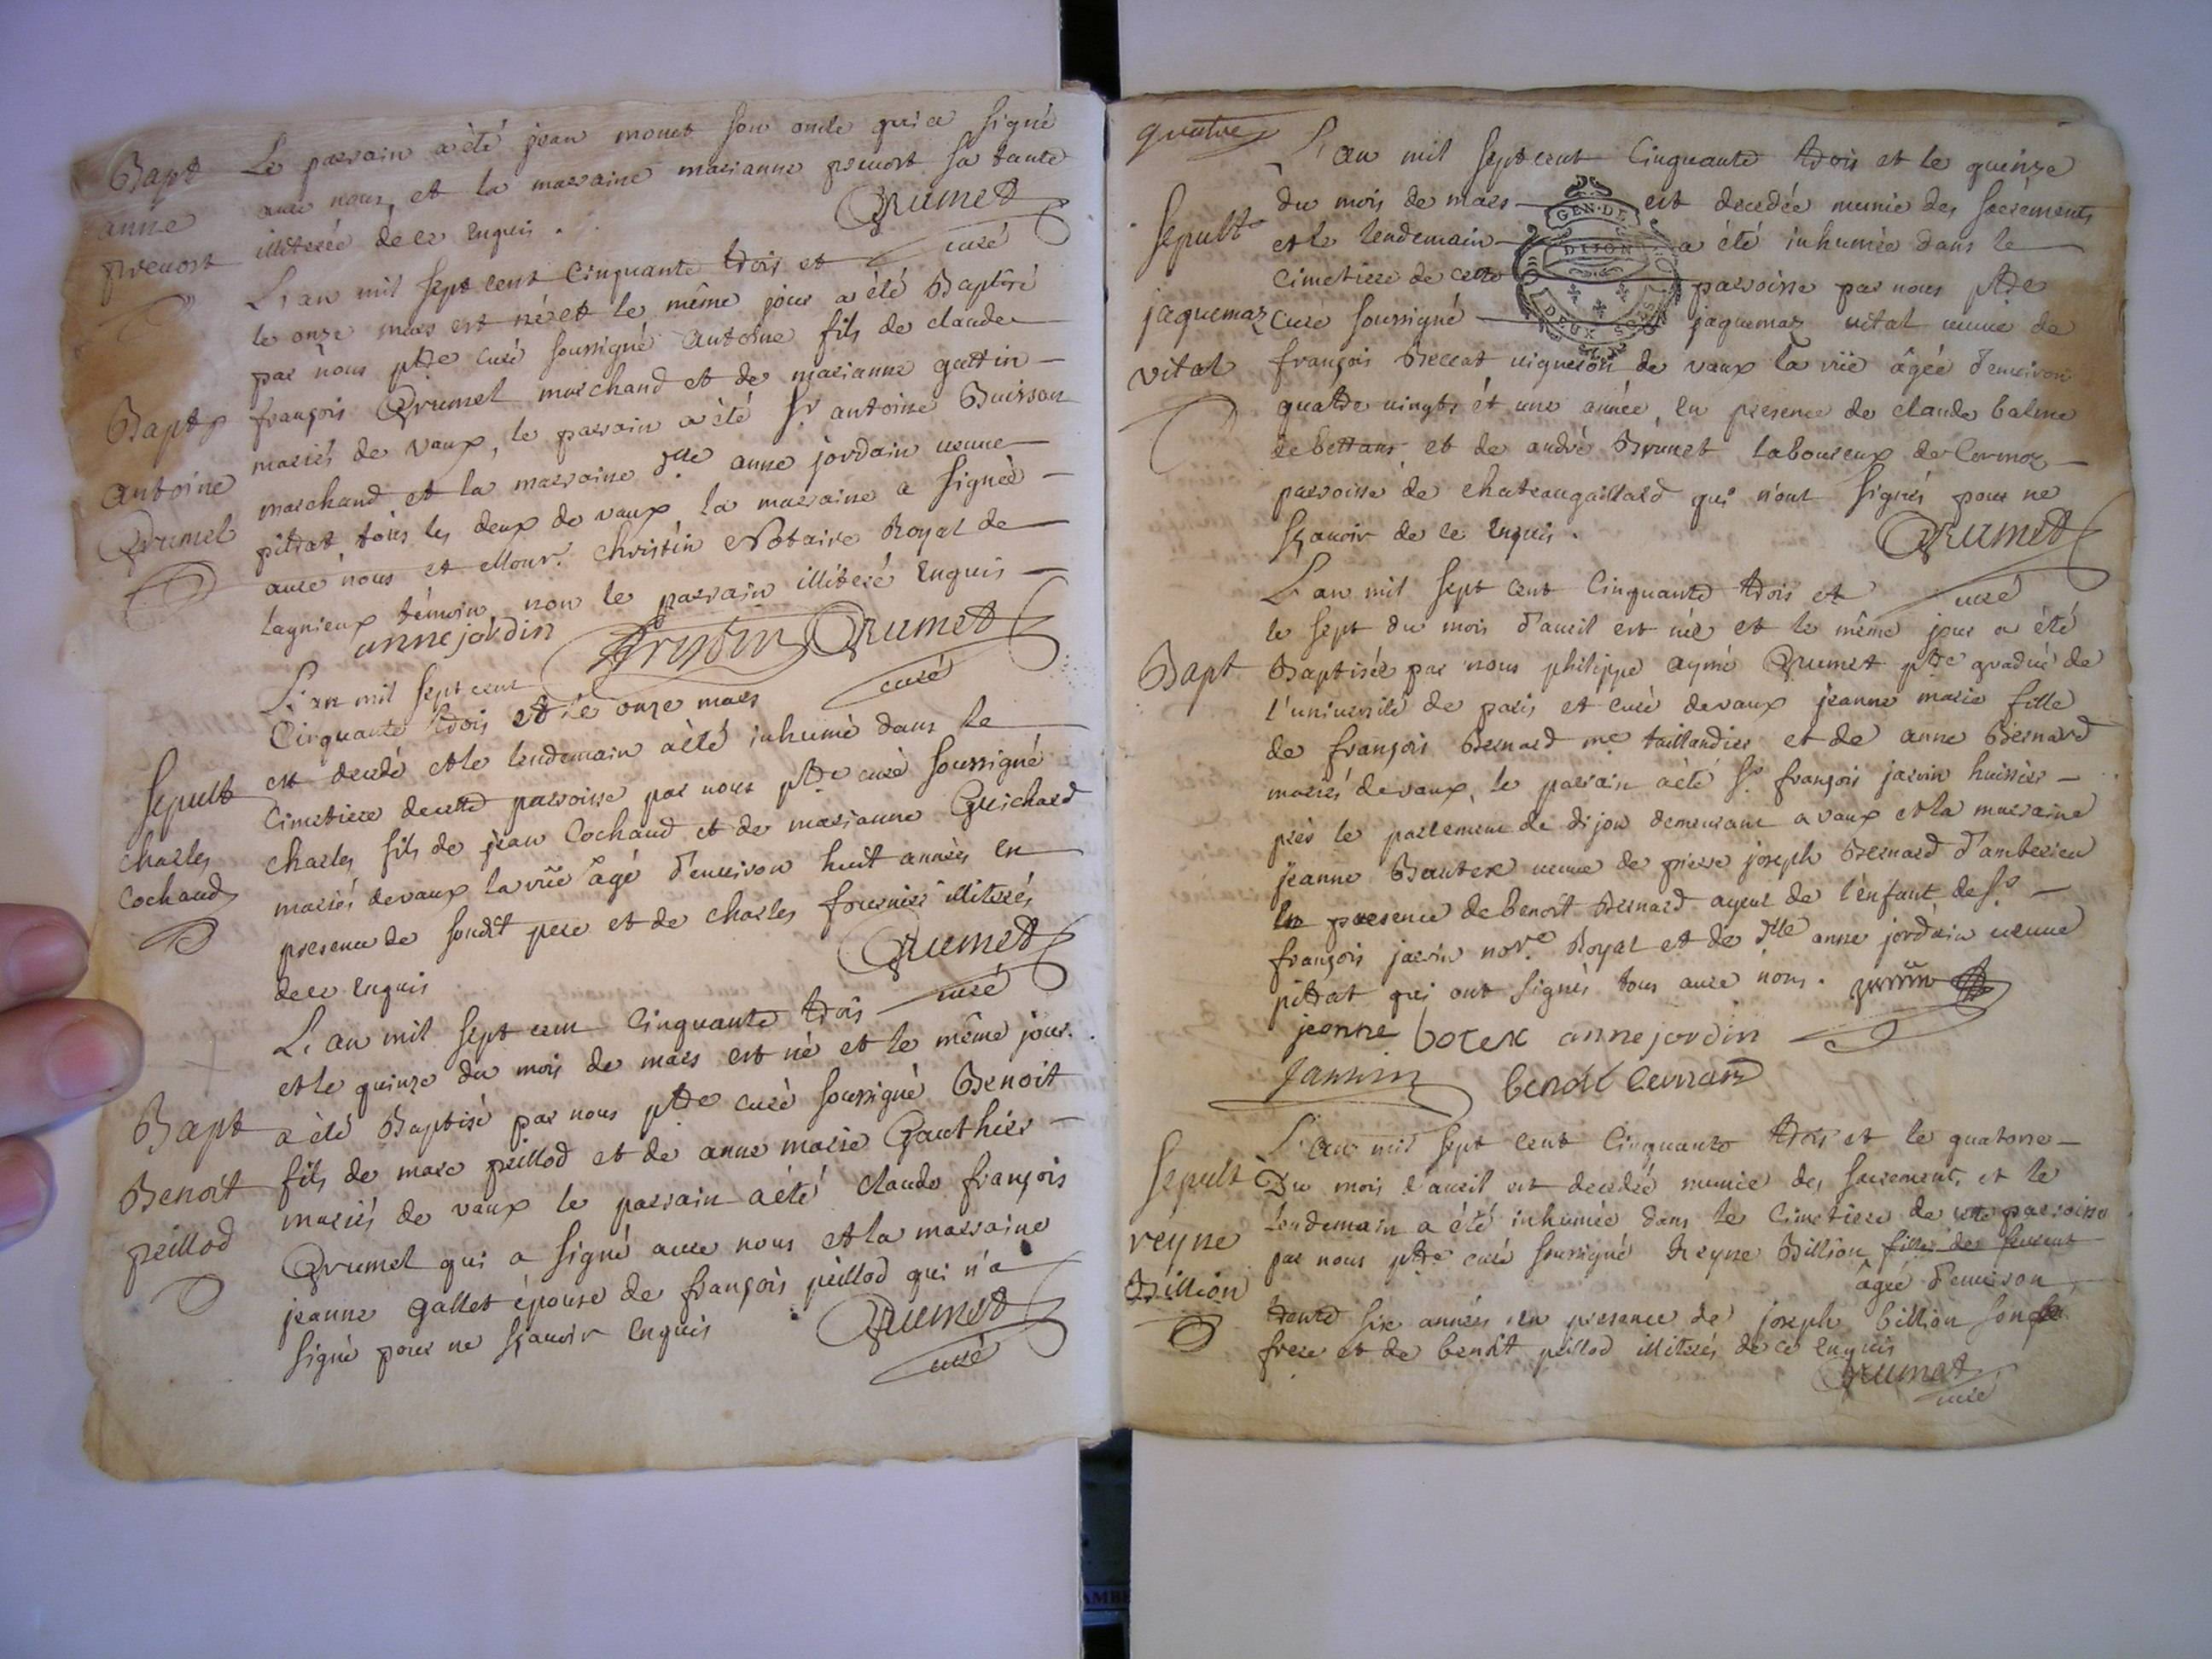 Bapt
anne
prevost
Le parrain a èté jean monet son oncle qui a signé
avec nous, et la marraine marianne prevost sa tante
illiterée de ce enquis .
Grumet
curé
L'an mil sept cent Cinquante trois et
le onze mars est né et le même jour a été Baptisé
par nous ptre curé soussigné antoine fils de claude
Bapt
antoine
Grumel
françois Grumel marchand et de marianne guttin
mariés de vaux, le parrain a été Sr antoine Buisson
marchand et la marraine dlle anne jordain veuve
pittrat tous les deux de vaux la marraine a signée
avec nous et Monr. Christin Notaire Royal de
Lagnieux témoin non le parrain illiteré enquis
anne jordin Christin Grumet
curé
L'an mil sept cent
Cinquante trois et le onze mars
est decedé et le lendemain a èté inhumé dans le
Sepult
charles
Cochand
Cimetiere de cette parroisse par nous ptre curé soussigné
charles fils de jean Cochand et de marianne Guichard
mariés de vaux la viie âgé d'environ huit années en
presence de sondt pere et de charles fournier illiterés
de ce enquis
Grumet
curé
L'an mil sept cent Cinquante trois
et le quinze du mois de mars est né et le même jour
Bapt
Benoit
peillod
a èté Baptisé par nous ptre curé soussigné Benoit
fils de marc peillod et de anne marie Gauthier
mariés de vaux le parrain a èté claude françois
Grumel qui a signé avec nous et la marraine
jeanne gallet épouse de françois peillod qui n'a
signé pour ne sçavoir enquis
Grumet
curé
quatre
L'an mil sept cent Cinquante trois et le quinze
du mois de mars est decedée munie des sacrements
Sepult
jaquemaz
vital
et le lendemain a été inhumée dans le
Cimetiere de cette parroisse par nous ptre
Curé soussigné jaquemaz vital veuve de
GEN. DE
DIJON
DEUX SOLS
françois Beccat vigneron de vaux la viie âgée d'environ
quatre vingts et une année, en presence de claude balme
de bettans et de andré Brunet laboureux de Cormoz
parroisse de chateaugaillard qui n'ont signés pour ne
sçavoir de ce enquis .
Grumet
curé
L'an mil sept cent Cinquante trois et
le sept du mois d'avril est née et le même jour a été
Bapt
Baptisée par nous philippe aymé Grumet ptre gradué de
l'université de paris et curé de vaux jeanne marie fille
de françois Bernard me taillandier et de anne Bernard
mariés de vaux, le parrain a èté Sr. françois jarvin huissier
près le parlement de dijon demeurant a vaux et la marraine
jeanne Bautex veuve de pierre joseph Bernard d'amberieu
en presence de benoit Bernard ayeul de l'enfant de Sr.
françois jarvin nore Royal et de dlle anne jordain veuve
pittrat qui ont signés tous avec nous .
jeanne botex anne jordin
benoit
L'an mil sept cent Cinquante trois et le quatorze
Sepult
reyne
Billion
Du mois d'avril est decedée munie des sacrements et le
lendemain a été inhumée dans le Cimetiere de cette parroisse
par nous ptre curé soussigné Reyne Billion
âgée d'environ
trente six années en presence de joseph billion son
frere et de benoit peillod illiterés de ce enquis
Grumet
curé